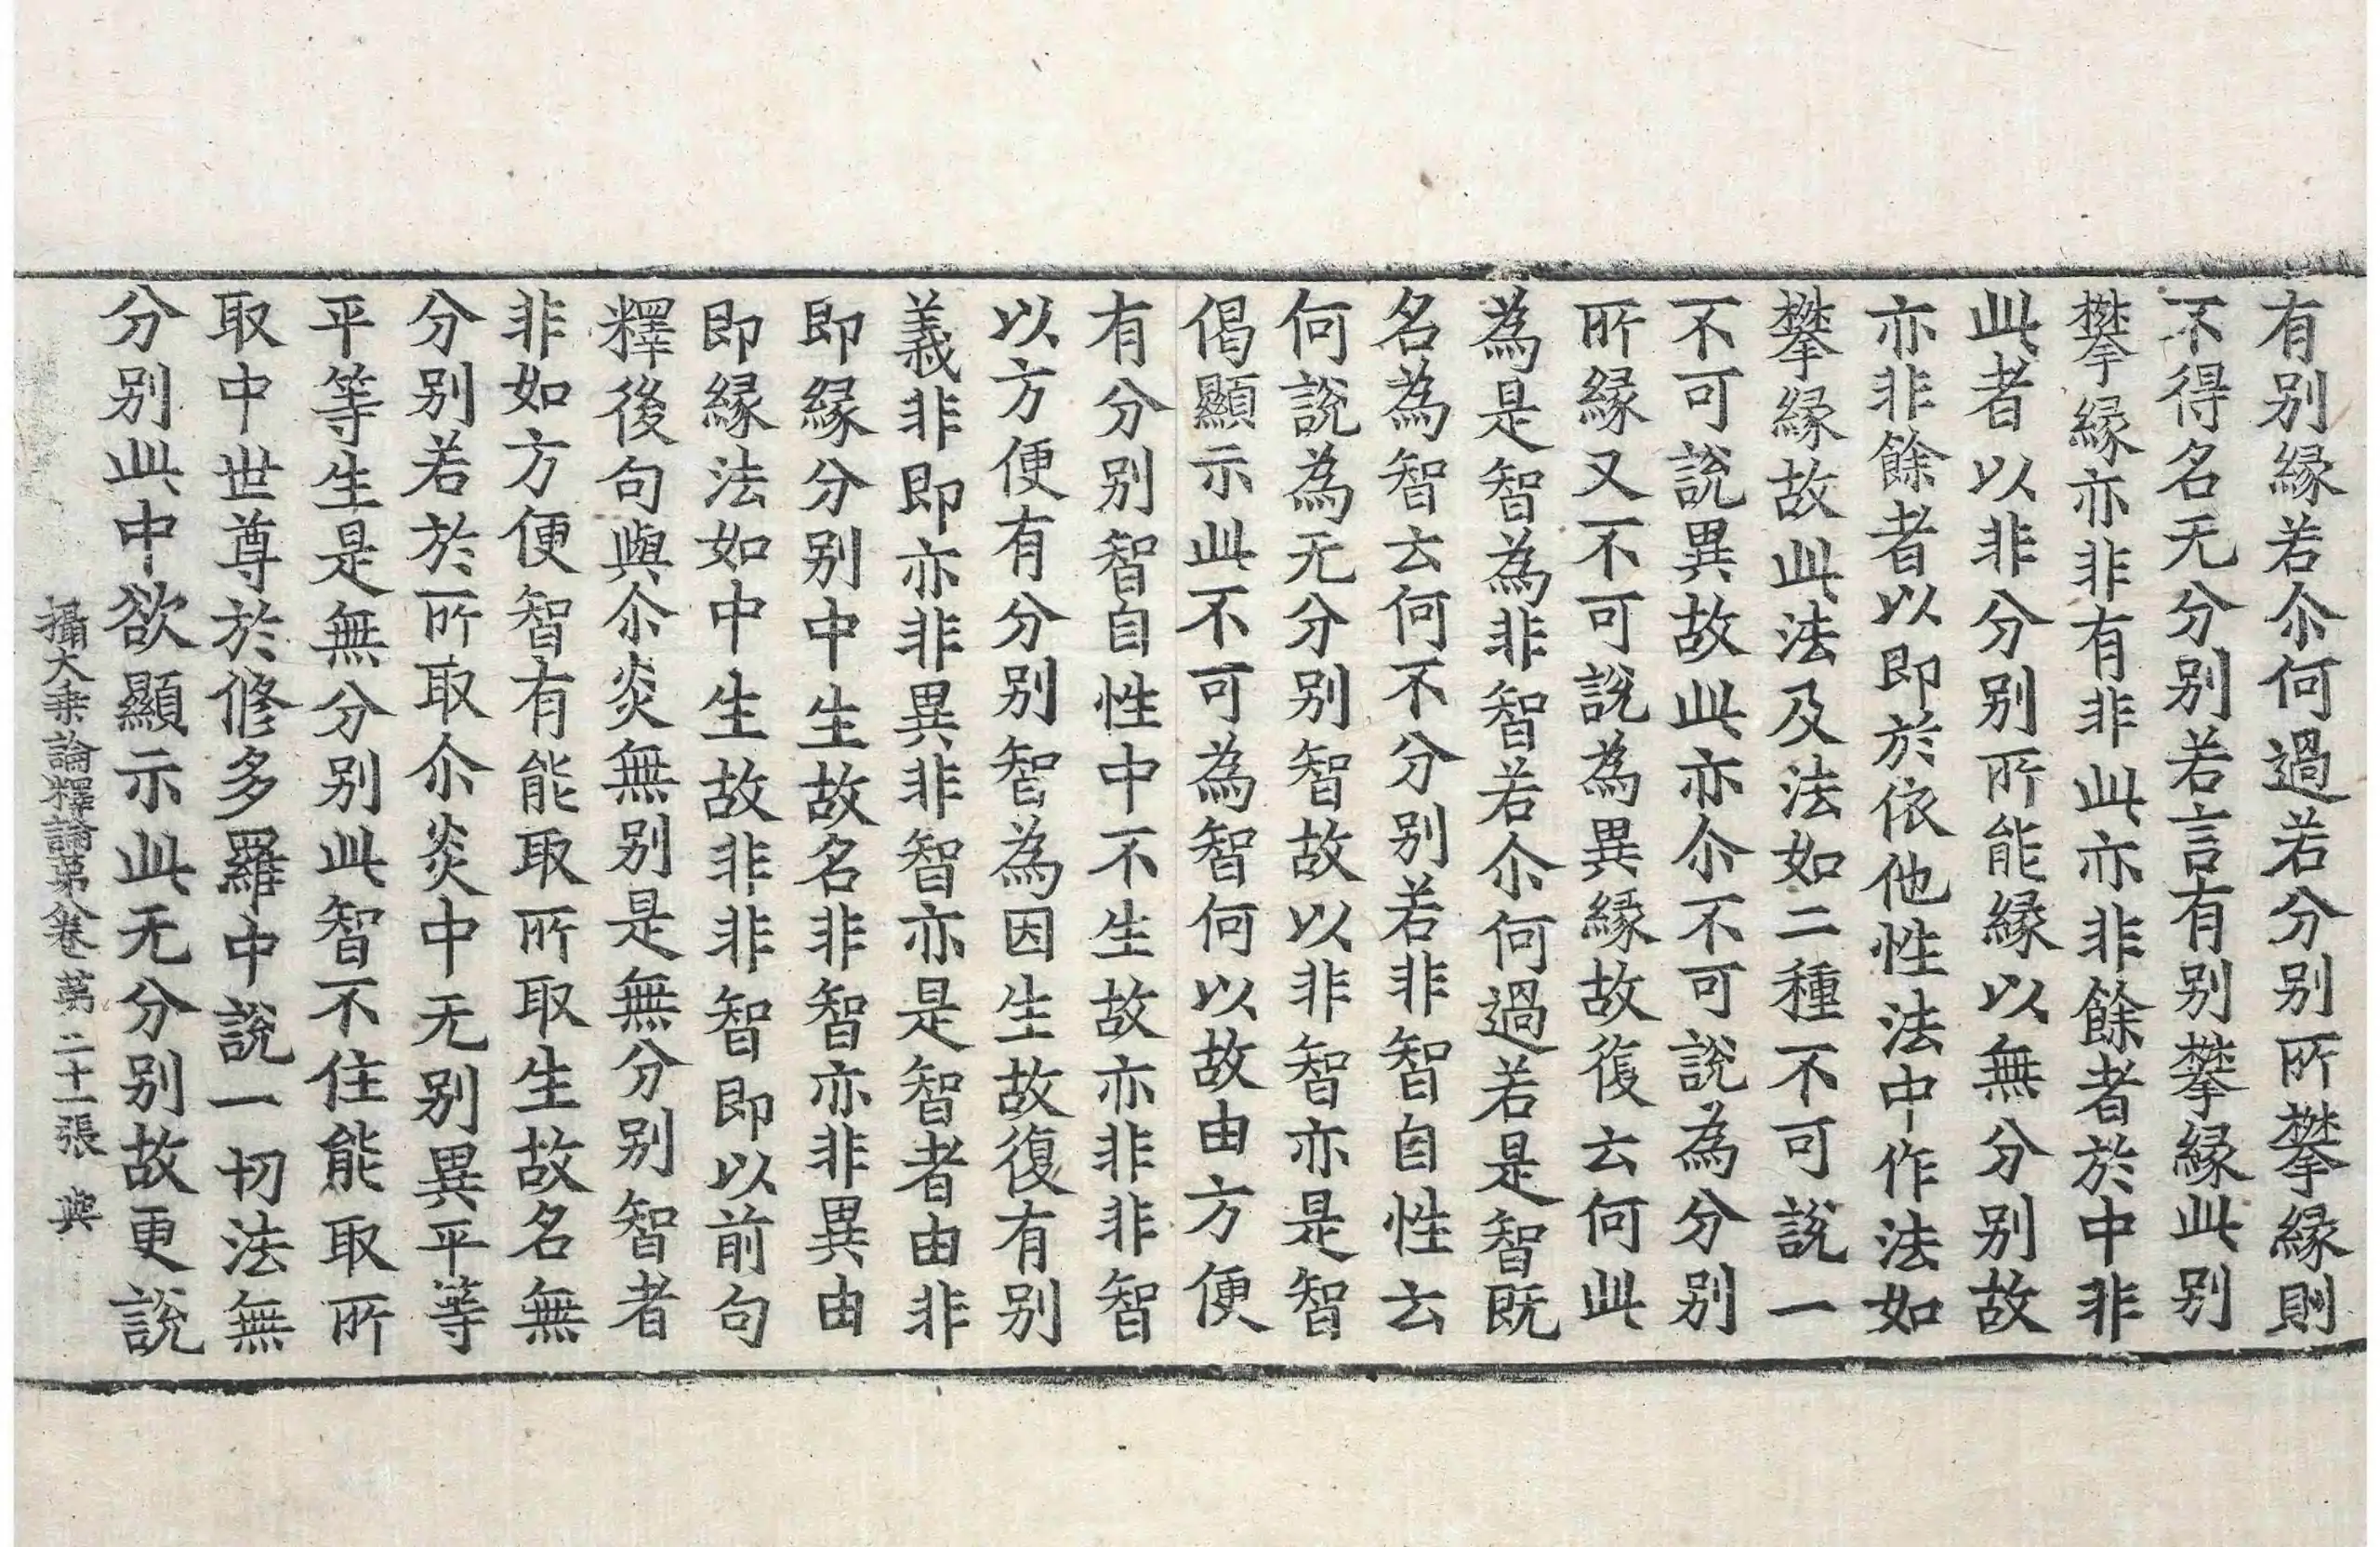 有别緣若尒何過若分别所攀緣則
不得名无分别若言有别攀緣此别
攀緣亦非有非此亦非餘者於中非
此者以非分别所能緣以無分别故
亦非餘者以即於依他性法中作法如
攀緣故此法及法如二種不可說一
不可說異故此亦尒不可說為分别
所緣又不可說為異緣故復云何此
為是智為非智若尒何過若是智既
名為智云何不分别若非智自性云
何說為无分别智故以非智亦是智
偈顯示此不可為智何以故由方便
有分别智自性中不生故亦非非智
以方便有分别智為因生故復有别
義非即亦非異非智亦是智者由非
即緣分别中生故名非智亦非異由
即緣法如中生故非非智即以前句
釋後句與尒炎無别是無分别智者
非如方便智有能取所取生故名無
分别若於所取尒炎中无别異平等
平等生是無分别此智不住能取所
取中世尊於修多羅中說一切法無
分别此中欲顯示此无分别故更說
攝大乘論釋論第八卷 第二十一張 典